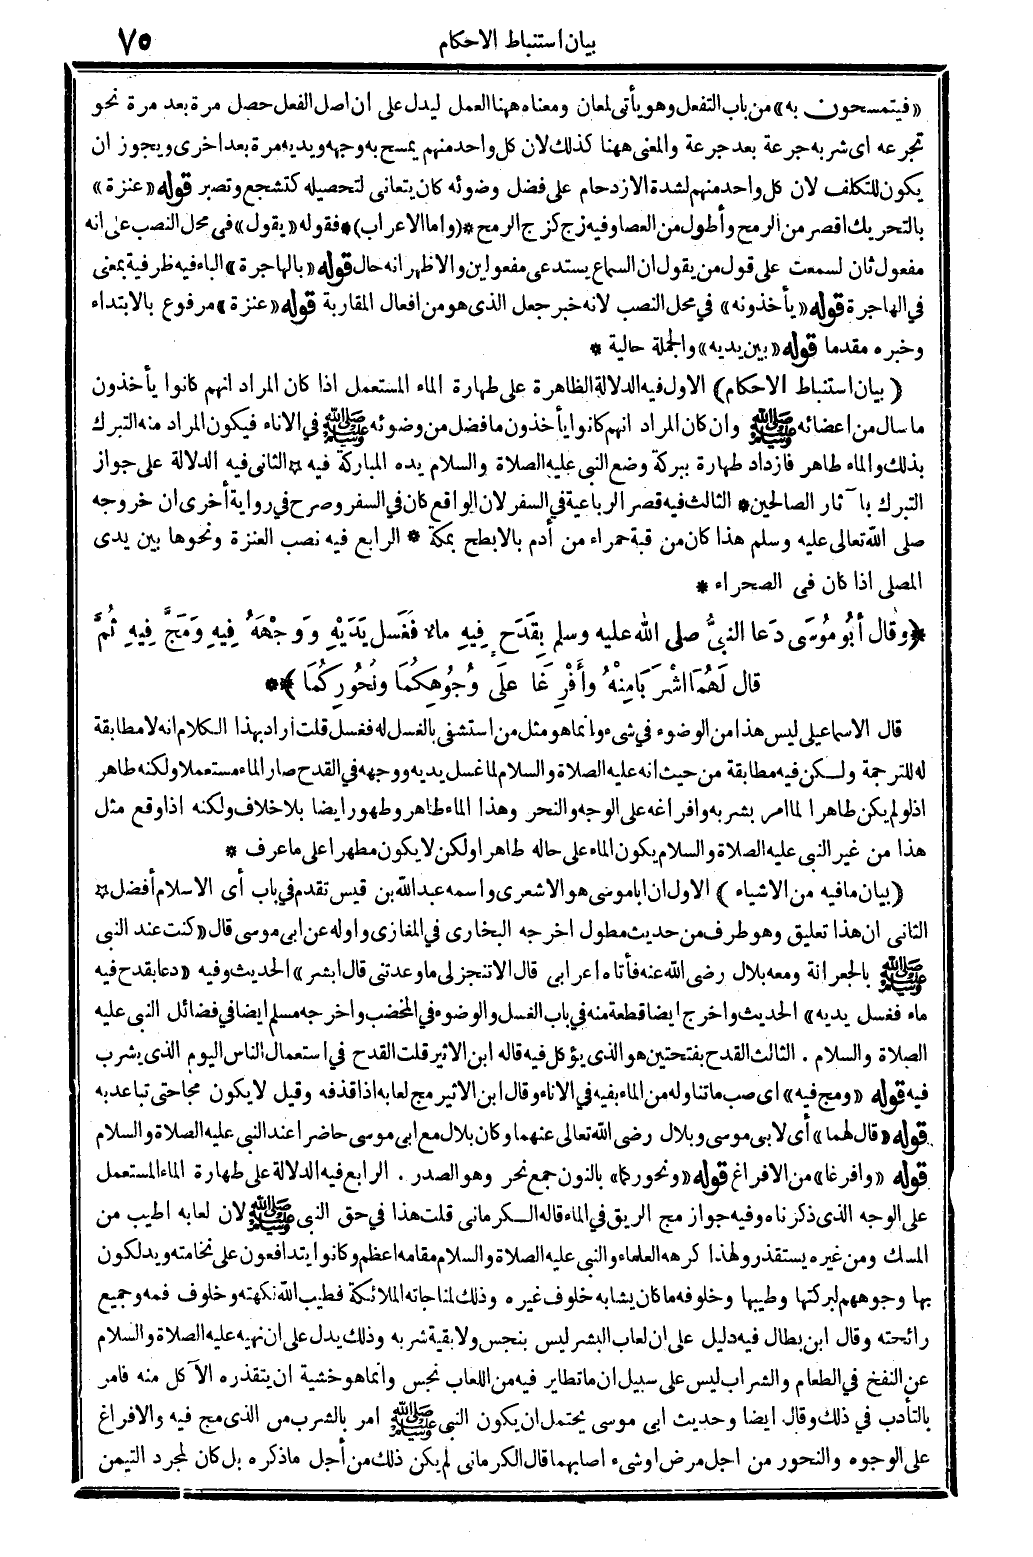 بيان استنباط الاحكام ٧٥
«فيتمسحون به» من باب التفعل وهو يأتى لمعان ومعناه ههنا العمل ليدل على ان اصل الفعل حصل مرة بعد مرة نحو
تجرعه اى شربه جرعة بعد جرعة والمعنى ههنا كذلك لان كل واحد منهم يمسح به وجهه ويديه مرة بعد اخرى ويجوز ان
يكون للتكلف لان كل واحد منهم لشدة الازدحام على فضل وضوئه كان يتعانى لتحصيله كتشجع وتصبر قوله «عنزة»
بالتحريك اقصر من الرمح وأطول من العصا وفيه زج كزج الرمح * (واما الاعراب) * فقوله «يقول» فى محل النصب على انه
مفعول ثان لسمعت على قول من يقول ان السماع يستدعى مفعولين والاظهر انه حال قوله «بالهاجرة» الباء فيه ظرفية بمعنى
في الهاجرة قوله «يأخذونه» في محل النصب لانه خبر جعل الذى هو من افعال المقاربة قوله «عنزة» مرفوع بالابتداء
وخبره مقدما قوله «بين يديه» والجملة حالية *
(بيان استنباط الاحكام) الاول فيه الدلالة الظاهرة على طهارة الماء المستعمل اذا كان المراد انهم كانوا يأخذون
ما سال من اعضائه ﷺ وان كان المراد انهم كانوا يأخذون ما فضل من وضوئه ﷺ في الاناء فيكون المراد منه التبرك
بذلك والماء طاهر فازداد طهارة ببركة وضع النبى عليه الصلاة والسلام يده المباركة فيه * الثانى فيه الدلالة على جواز
التبرك بآثار الصالحين * الثالث فيه قصر الرباعية في السفر لان الواقع كان في السفر وصرح في رواية أخرى ان خروجه
صلى الله تعالى عليه وسلم هذا كان من قبة حمراء من أدم بالابطح بمكة * الرابع فيه نصب العنزة ونحوها بين يدى
المصلى اذا كان فى الصحراء *
﴿وقال أبُو مُوسَى دَعا النبيُّ صلى الله عليه وسلم بِقَدَحٍ فِيهِ ماء فَغَسل يَدَيْهِ وَوَجْهَهُ فِيهِ وَمَجَّ فِيهِ ثُمَّ
قال لَهُمَا اشْرَبَا مِنْهُ وأَفْرِغَا علَى وُجُوهِكُمَا ونُحُورِكُمَا﴾ **
قال الاسماعيلى ليس هذا من الوضوء في شىء وانما هو مثل من استشفى بالغسل له فغسل قلت اراد بهذا الكلام انه لا مطابقة
له للترجمة ولكن فيه مطابقة من حيث انه عليه الصلاة والسلام لما غسل يديه ووجهه في القدح صار الماء مستعملا ولكنه طاهر
اذ لو لم يكن طاهرا لما امر بشربه وافراغه على الوجه والنحر وهذا الماء طاهر وطهور ايضا بلا خلاف ولكنه اذا وقع مثل
هذا من غير النبى عليه الصلاة والسلام يكون الماء على حاله طاهرا ولكن لا يكون مطهرا على ما عرف *
(بيان ما فيه من الاشياء) الاول ان ابا موسى هو الاشعرى واسمه عبد الله بن قيس تقدم في باب أى الاسلام أفضل *
الثانى ان هذا تعليق وهو طرف من حديث مطول اخرجه البخارى في المغازى واوله عن ابى موسى قال «كنت عند النبى
ﷺ بالجعرانة ومعه بلال رضى الله عنه فأتاه اعرابى قال الا تنجز لى ما وعدتنى قال ابشر» الحديث وفيه «دعا بقدح فيه
ماء فغسل يديه» الحديث واخرج ايضا قطعة منه في باب الغسل والوضوء في المخضب واخرجه مسلم ايضا في فضائل النبى عليه
الصلاة والسلام . الثالث القدح بفتحتين هو الذى يؤكل فيه قاله ابن الاثير قلت القدح في استعمال الناس اليوم الذى يشرب
فيه قوله «ومج فيه» اى صب ما تناوله من الماء بفيه في الاناء وقال ابن الاثير مج لعابه اذا قذفه وقيل لا يكون مجا حتى تباعد به
قوله «قال لهما» أى لابى موسى وبلال رضى الله تعالى عنهما وكان بلال مع ابى موسى حاضرا عند النبى عليه الصلاة والسلام
قوله «وافرغا» من الافراغ قوله «ونحوركما» بالنون جمع نحر وهو الصدر . الرابع فيه الدلالة على طهارة الماء المستعمل
على الوجه الذى ذكرناه وفيه جواز مج الريق في الماء قاله الكرمانى قلت هذا في حق النبى ﷺ لان لعابه اطيب من
المسك ومن غيره يستقذر ولهذا كرهه العلماء والنبى عليه الصلاة والسلام مقامه اعظم وكانوا يتدافعون على نخامته ويدلكون
بها وجوههم لبركتها وطيبها وخلوفه ما كان يشابه خلوف غيره وذلك لمناجاته الملائكة فطيب الله نكهته وخلوف فمه وجميع
رائحته وقال ابن بطال فيه دليل على ان لعاب البشر ليس بنجس ولا بقية شربه وذلك يدل على ان نهيه عليه الصلاة والسلام
عن النفخ في الطعام والشراب ليس على سبيل ان ما تطاير فيه من اللعاب نجس وانما هو خشية ان يتقذره الآكل منه فامر
بالتأدب في ذلك وقال ايضا وحديث ابى موسى يحتمل ان يكون النبى ﷺ امر بالشرب من الذى مج فيه والافراغ
على الوجوه والنحور من اجل مرض او شىء اصابهما قال الكرمانى لم يكن ذلك من أجل ما ذكره بل كان لمجرد التيمن